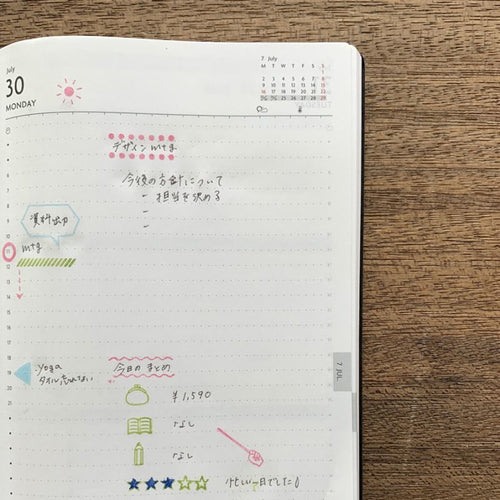 July
30
MONDAY
7 July
M T W T F S S
2 3 4 5 6 7 8
9 10 11 12 13 14 15
16 17 18 19 20 21 22
25 26 27 28 29
デザインmtg
今後の方針について
- 担当を決める
-
-
資料出力
11
mtg
12
13
14
15
16
17
18
19
20
21
yoga
タオル忘れない
今日のまとめ
¥1,590
なし
なし
忙しい一日でした
7 JUL